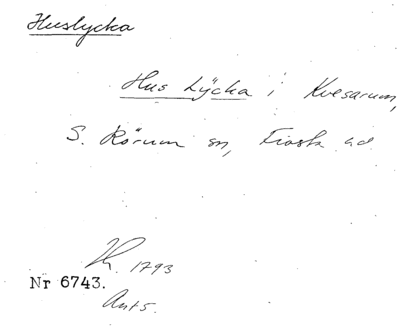 Huslycka
Hus Lÿcka i Kvesarum,
S. Rörum sn, Frosta hd
1793
Nr 6743.
Ant 5.